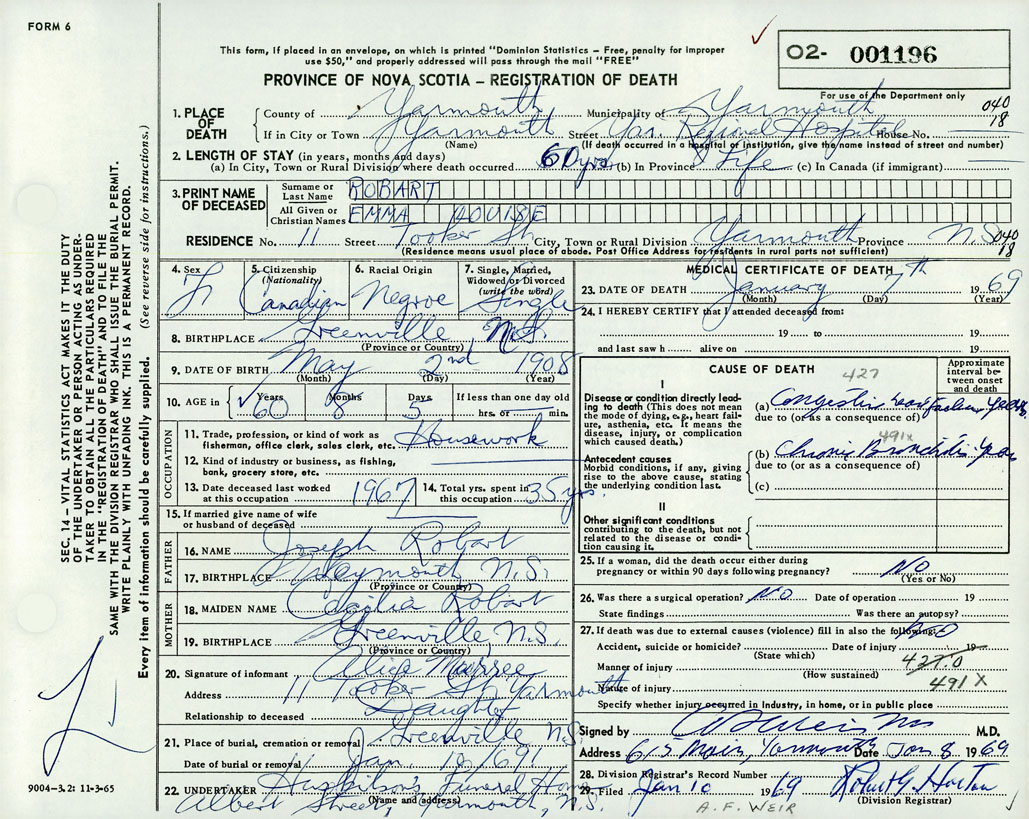 FORM 6
This form, if placed in an envelope, on which is printed "Dominion Statistics – Free, penalty for improper
use $50," and properly addressed will pass through the mail "FREE"
PROVINCE OF NOVA SCOTIA – REGISTRATION OF DEATH
O2- 001196
For use of the Department only
040
18
1. PLACE OF DEATH
County of Yarmouth Municipality of Yarmouth
If in City or Town Yarmouth Street Yar. Regional Hospital House No.
(Name) (If death occurred in a hospital or institution, give the name instead of street and number)
2. LENGTH OF STAY (in years, months and days)
(a) In City, Town or Rural Division where death occurred 60 yrs (b) In Province Life (c) In Canada (if immigrant)
3. PRINT NAME OF DECEASED
Surname or Last Name ROBART
All Given or Christian Names EMMA LOUISE
RESIDENCE No. 11 Street Tooker St. City, Town or Rural Division Yarmouth Province N.S. 040
18
(Residence means usual place of abode. Post Office Address for residents in rural parts not sufficient)
4. Sex F
5. Citizenship (Nationality) Canadian
6. Racial Origin Negroe
7. Single, Married, Widowed or Divorced (write the word) Single
8. BIRTHPLACE Greenville, N.S.
(Province or Country)
9. DATE OF BIRTH May 2nd 1908
(Month) (Day) (Year)
10. AGE in Years 60 Months 8 Days 5 If less than one day old
hrs. or min.
OCCUPATION
11. Trade, profession, or kind of work as fisherman, office clerk, sales clerk, etc. Housework
12. Kind of industry or business, as fishing, bank, grocery store, etc.
13. Date deceased last worked at this occupation 1967
14. Total yrs. spent in this occupation 35 yrs.
15. If married give name of wife or husband of deceased
FATHER
16. NAME Joseph Robart
17. BIRTHPLACE Weymouth, N.S.
(Province or Country)
MOTHER
18. MAIDEN NAME Robart
19. BIRTHPLACE Greenville, N.S.
(Province or Country)
20. Signature of informant Alice
Address 11 Tooker St. Yarmouth
Relationship to deceased Daughter
21. Place of burial, cremation or removal Greenville N.S.
Date of burial or removal Jan. 10/69
22. UNDERTAKER Funeral Home
(Name and address)
Albert Street, Yarmouth, N.S.
MEDICAL CERTIFICATE OF DEATH
23. DATE OF DEATH January 7th 1969
(Month) (Day) (Year)
24. I HEREBY CERTIFY that I attended deceased from:
19 to 19
and last saw h alive on 19
CAUSE OF DEATH 427
Approximate interval between onset and death
I
Disease or condition directly leading to death (This does not mean the mode of dying, e.g., heart failure, asthenia, etc. It means the disease, injury, or complication which caused death.)
(a) Congestive Heart Failure Years
due to (or as a consequence of)
491x
Antecedent causes
Morbid conditions, if any, giving rise to the above cause, stating the underlying condition last.
(b) Chronic Bronchitis Years
due to (or as a consequence of)
(c)
II
Other significant conditions contributing to the death, but not related to the disease or condition causing it.
25. If a woman, did the death occur either during pregnancy or within 90 days following pregnancy? NO
(Yes or No)
26. Was there a surgical operation? NO Date of operation 19
State findings Was there an autopsy?
27. If death was due to external causes (violence) fill in also the following:
Accident, suicide or homicide? Date of injury 19
(State which)
Manner of injury 427.0
(How sustained)
Nature of injury 491 X
Specify whether injury occurred in industry, in home, or in public place
Signed by M.D.
Address 615 Main, Yarmouth Date Jan 8 1969
28. Division Registrar's Record Number
29. Filed Jan 10 1969 Robert G. Horton
(Division Registrar)
A. F. WEIR
9004-3.2: 11-3-65
SEC. 14 – VITAL STATISTICS ACT MAKES IT THE DUTY
OF THE UNDERTAKER OR PERSON ACTING AS UNDER-
TAKER TO OBTAIN ALL THE PARTICULARS REQUIRED
IN THE "REGISTRATION OF DEATH" AND TO FILE THE
SAME WITH THE DIVISION REGISTRAR WHO SHALL ISSUE THE BURIAL PERMIT.
WRITE PLAINLY WITH UNFADING INK. THIS IS A PERMANENT RECORD.
Every item of information should be carefully supplied. (See reverse side for instructions.)